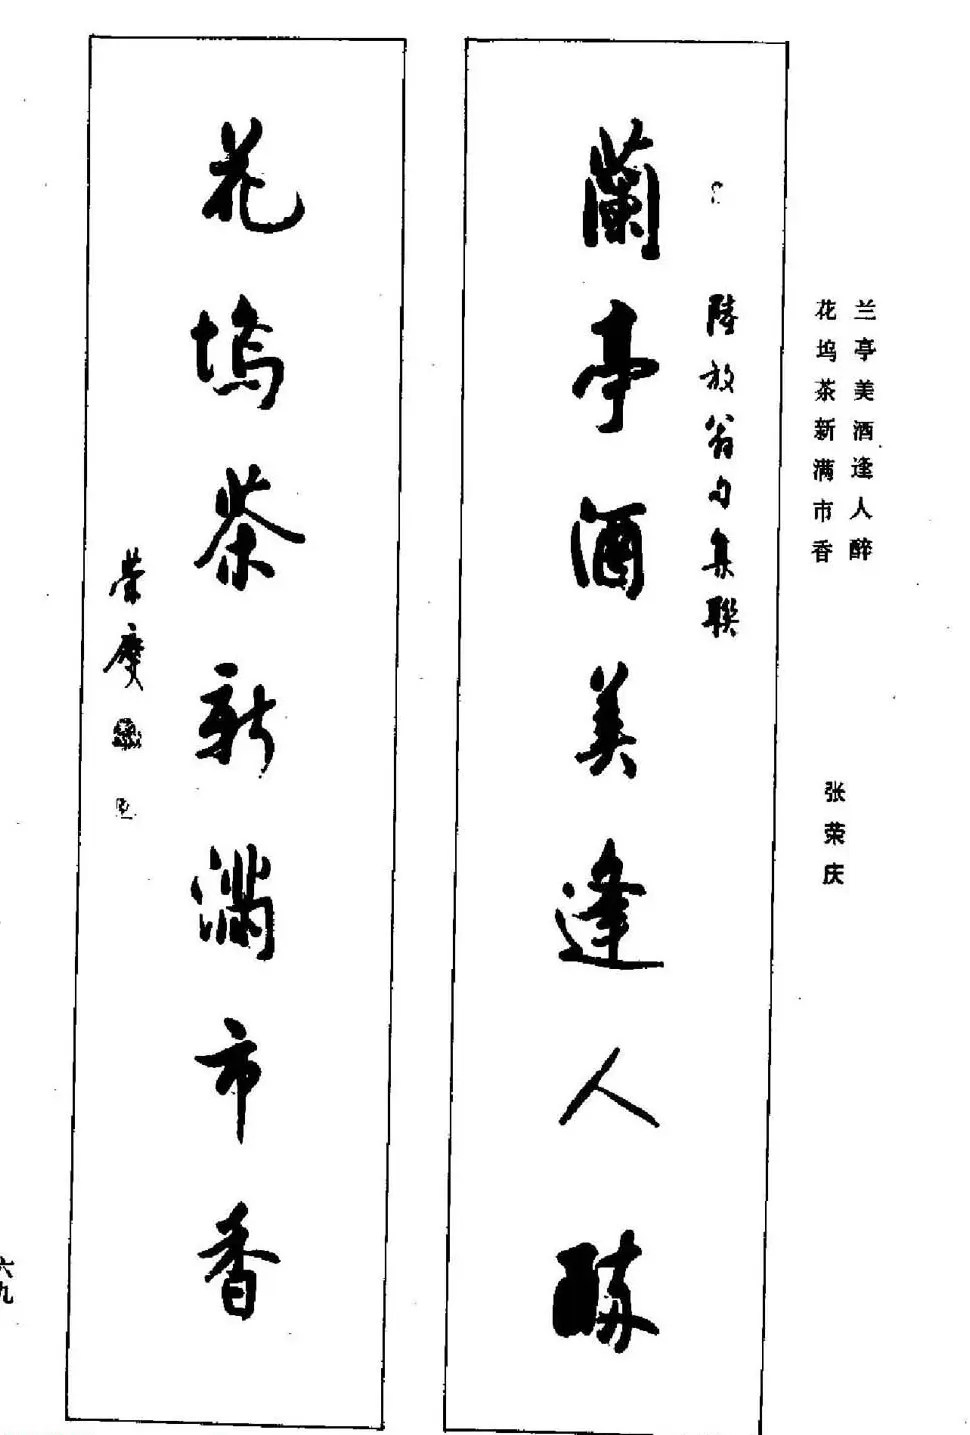 兰亭美酒逢人醉
花坞茶新满市香
张荣庆
陸放翁句集聯
蘭亭酒美逢人醉
花塢茶新滿市香
榮慶
六九